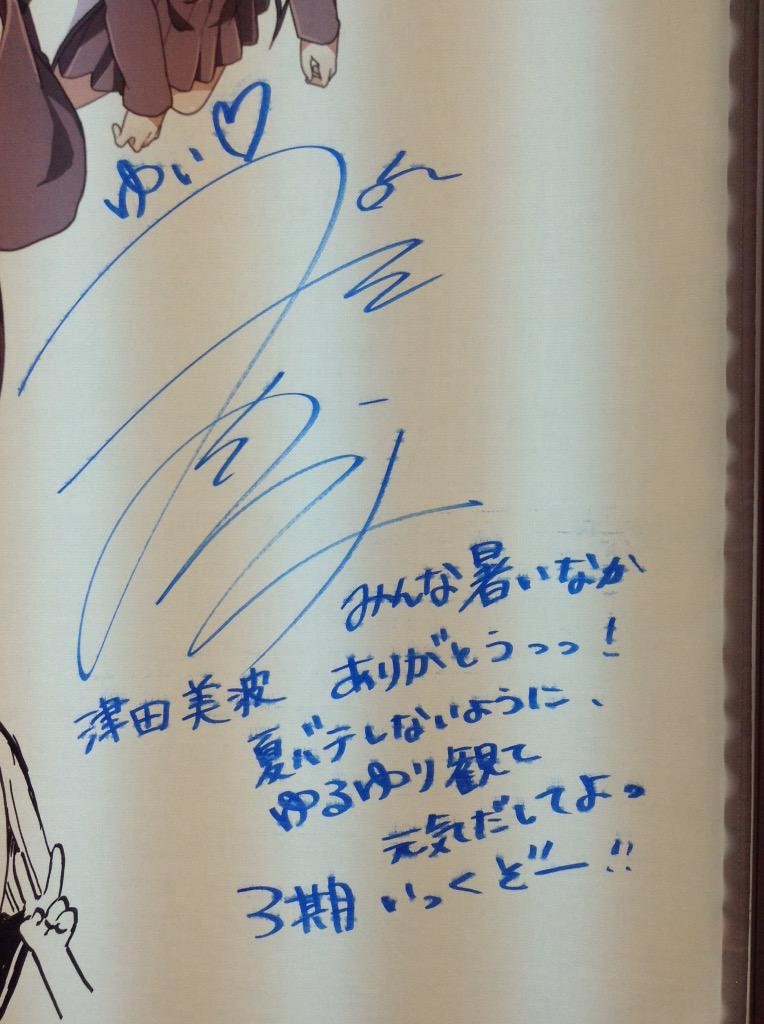 ゆい♡
みんな暑いなか
ありがとうっっ!
津田美波
夏バテしないように、
ゆるゆり観て
元気だしてよっ
3期いっくぞー!!